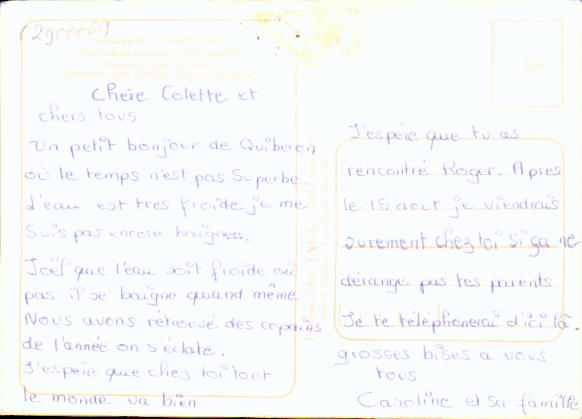 (2900069
COULEURS DE BRETAGNE
Chère Colette et
chers tous
Un petit bonjour de Quiberon
où le temps n'est pas Superbe.
L'eau est très froide je me
Suis pas encore baignée.
Joël que l'eau soit froide ou
pas il se baigne quand même
Nous avons retrouvé des copains
de l'année on s'éclate.
J'espère que chez toi tout
le monde va bien
J'espère que tu as
rencontré Roger. Après
le 15 aout je viendrais
surement chez toi si ça ne
dérange pas tes parents
Je te téléphonerai d'ici là.
grosses bises a vous
tous
Caroline et sa famille